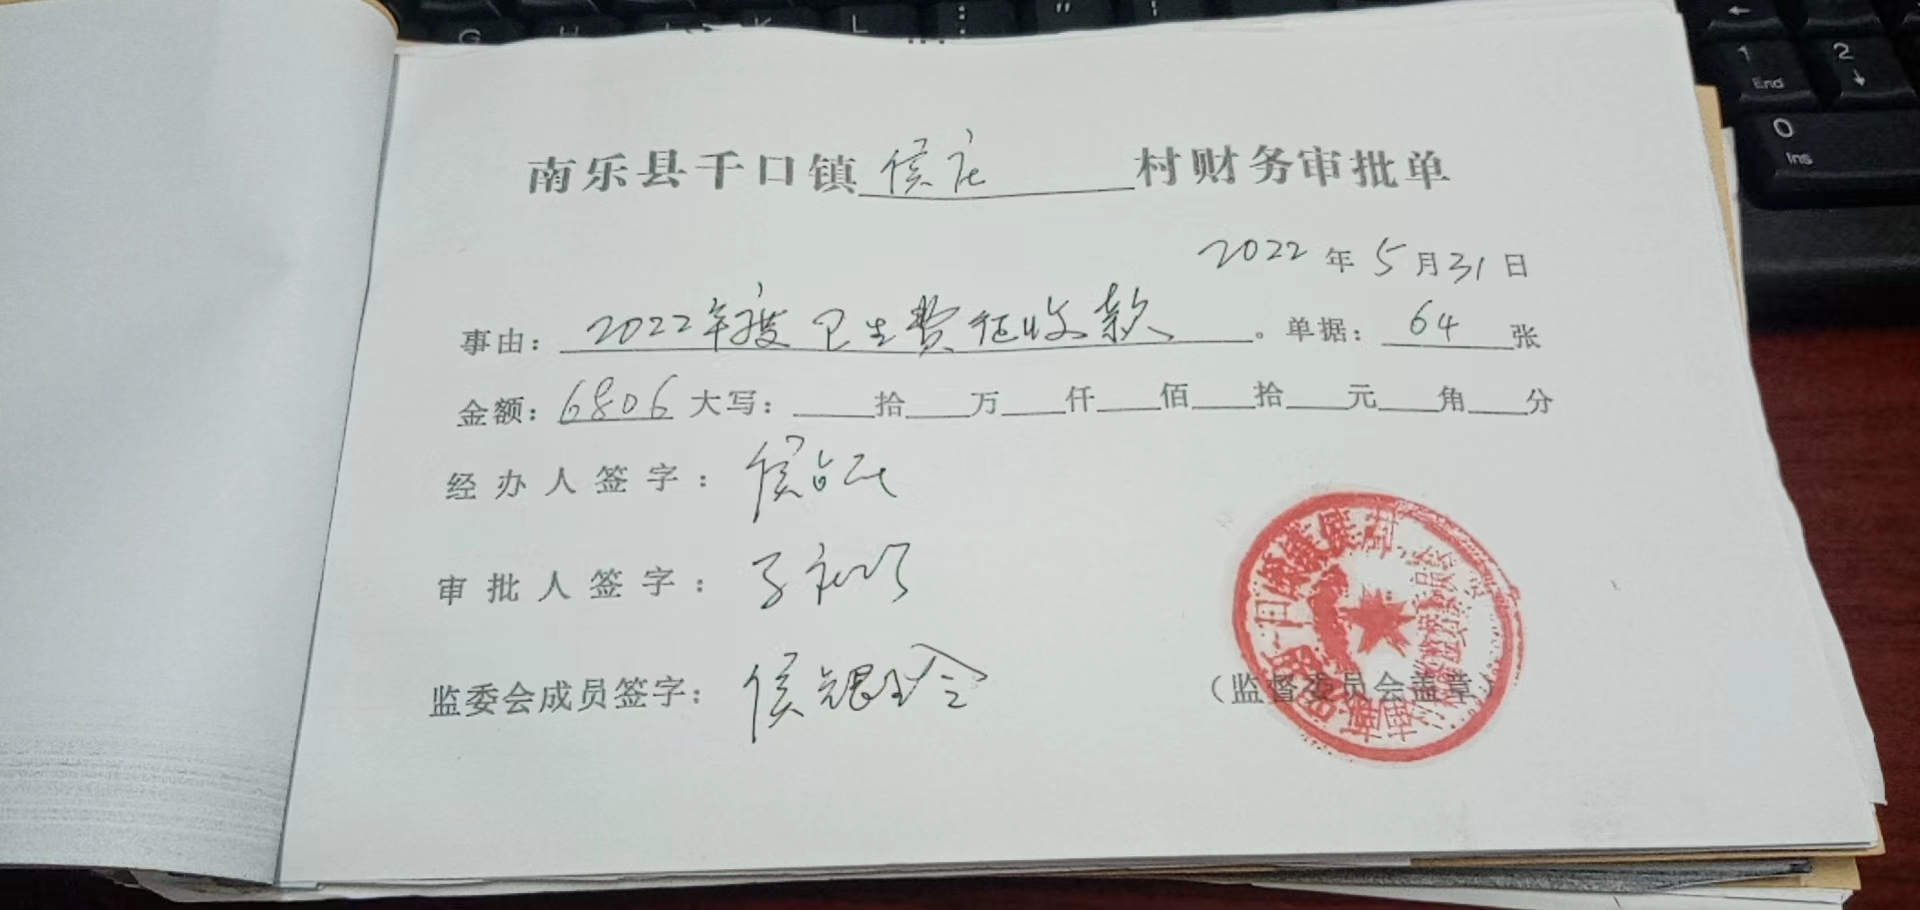 南乐县千口镇侯庄村财务审批单
2022年5月31日
事由：2022年度卫生费征收款。单据：64张
金额：6806大写：____拾____万____仟____佰____拾____元____角____分
经办人签字：侯
审批人签字：
监委会成员签字：侯
（监督委员会盖章）